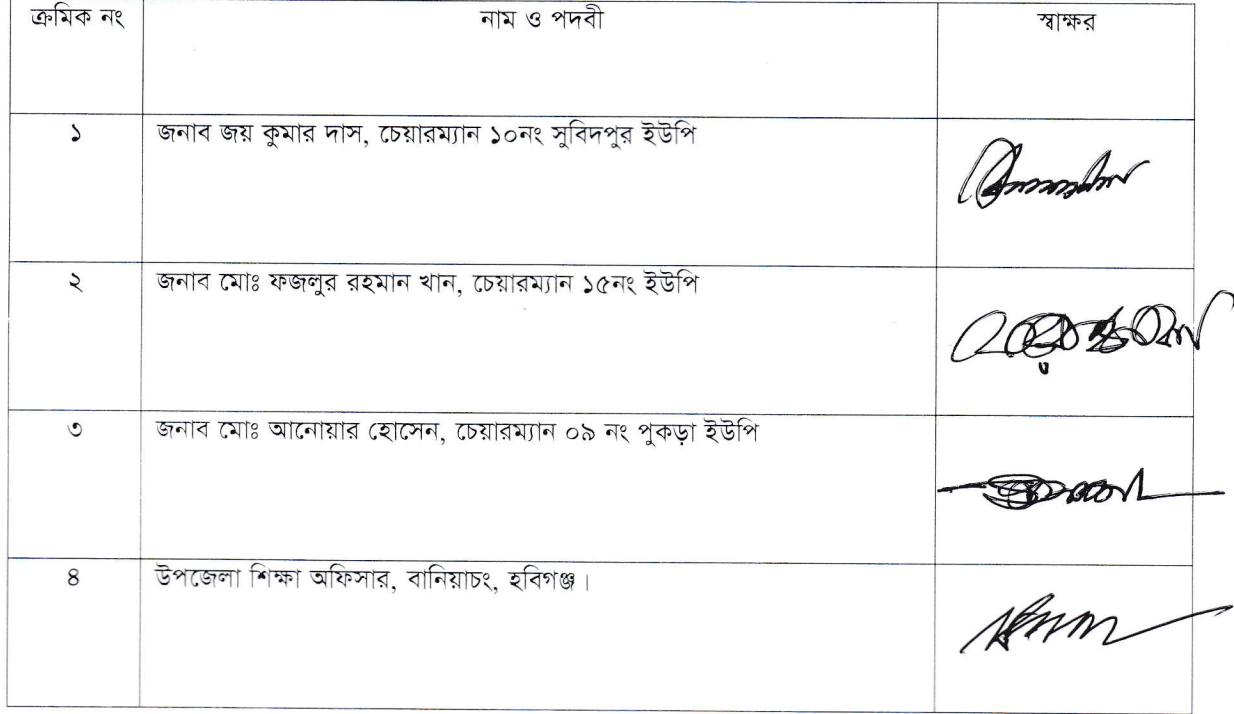 ক্রমিক নং নাম ও পদবী স্বাক্ষর
১ জনাব জয় কুমার দাস, চেয়ারম্যান ১০নং সুবিদপুর ইউপি
২ জনাব মোঃ ফজলুর রহমান খান, চেয়ারম্যান ১৫নং ইউপি
৩ জনাব মোঃ আনোয়ার হোসেন, চেয়ারম্যান ০৯ নং পুকড়া ইউপি
৪ উপজেলা শিক্ষা অফিসার, বানিয়াচং, হবিগঞ্জ।